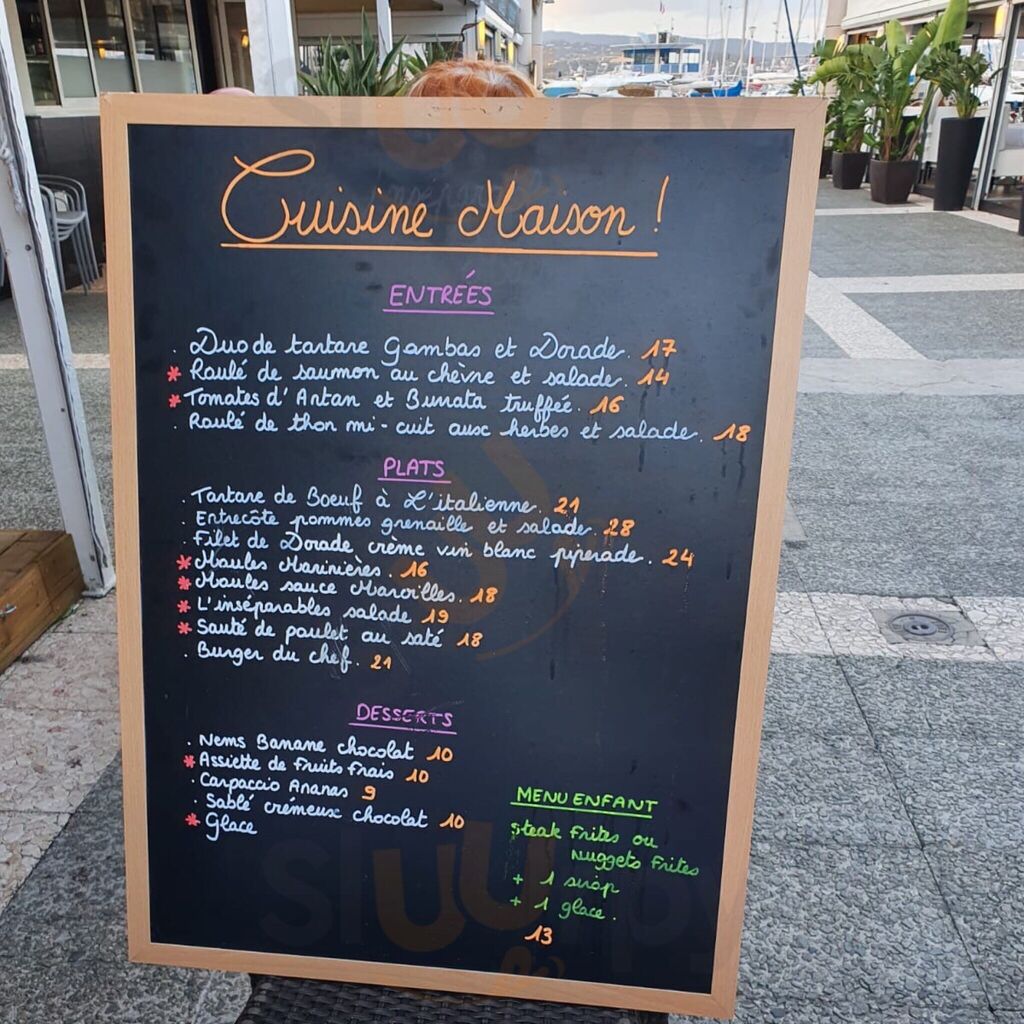 Cuisine Maison !
ENTRÉES
. Duo de tartare Gambas et Dorade. 17
* Roulé de saumon au chèvre et salade. 14
* Tomates d'Antan et Burrata truffée. 16
. Roulé de thon mi-cuit aux herbes et salade. 18
PLATS
. Tartare de Boeuf à L'italienne. 21
. Entrecôte pommes grenaille et salade. 28
. Filet de Dorade crème vin blanc piperade. 24
* Moules Marinières. 16
* Moules sauce Maroilles. 18
* L'inséparables salade. 19
* Sauté de poulet au saté. 18
. Burger du chef. 21
DESSERTS
. Nems Banane chocolat 10
* Assiette de Fruits Frais. 10
. Carpaccio Ananas 9
. Sablé crémeux chocolat 10
* Glace
MENU ENFANT
Steak Frites ou
Nuggets Frites
+ 1 sirop
+ 1 glace.
13
sluurpy
sluurpy